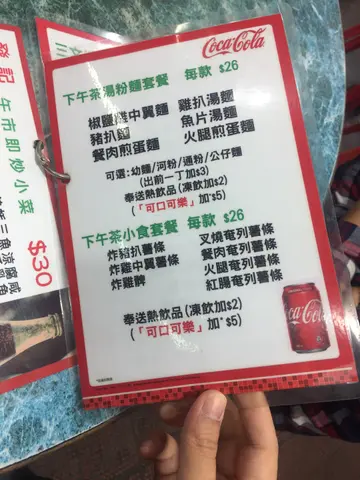 Coca-Cola
下午茶湯粉麵套餐 每款 $26
椒鹽雞中翼麵 雞扒湯麵
豬扒麵 魚片湯麵
餐肉煎蛋麵 火腿煎蛋麵
可選:幼麵/河粉/通粉/公仔麵
(出前一丁加$3)
奉送熱飲品(凍飲加$2)
(「可口可樂」加$5)
下午茶小食套餐 每款 $26
炸豬扒薯條 叉燒奄列薯條
炸雞中翼薯條 餐肉奄列薯條
炸雞髀 火腿奄列薯條
紅腸奄列薯條
奉送熱飲品(凍飲加$2)
(「可口可樂」加$5)
Coca-Cola
發記
午市即炒小菜
$30